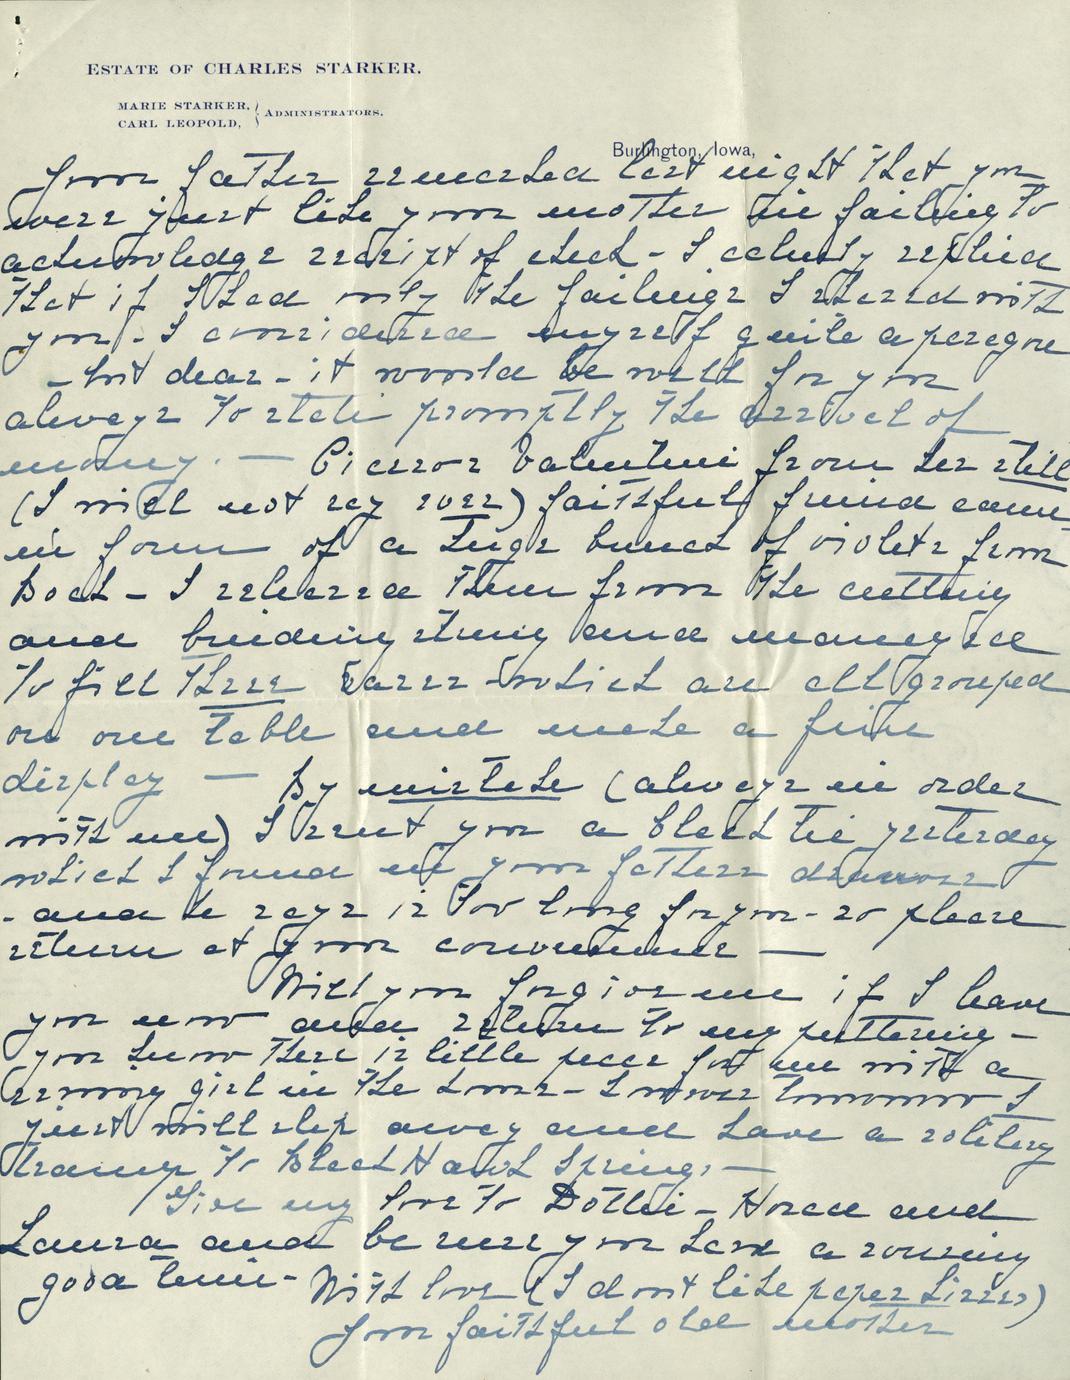 ESTATE OF CHARLES STARKER.
MARIE STARKER,
CARL LEOPOLD, } ADMINISTRATORS.
Burlington, Iowa,
Your father remarked last night that you
were just like your mother in failing to
acknowledge receipt of check - I calmly replied
that if I had only the failings I shared with
you - I considered myself quite a paragon
- but dear - it would be well for you
always to state promptly the arrival of
money. — Cicero's Valentine from her still
(I will not say sore) faithful friend came
in form of a huge bunch of violets from
Bock - I released them from the cutting
and binding string and managed
to fill three vases which are all grouped
on one table and make a fine
display — By mistake (always in order
with me) I sent you a black tie yesterday
which I found in your fathers drawer
- and he says is too long for you - so please
return at your convenience —
Will you forgive me if I leave
you now and return to my puttering -
you know there is little peace for me with a
sewing girl in the house - However tomorrow I
just will slip away and have a solitary
tramp to Black Hawk Springs —
Give my love to Dottie - Horace and
Laura and be sure you have a rousing
good time -
With love (I dont like paper kisses)
Your faithful old mother